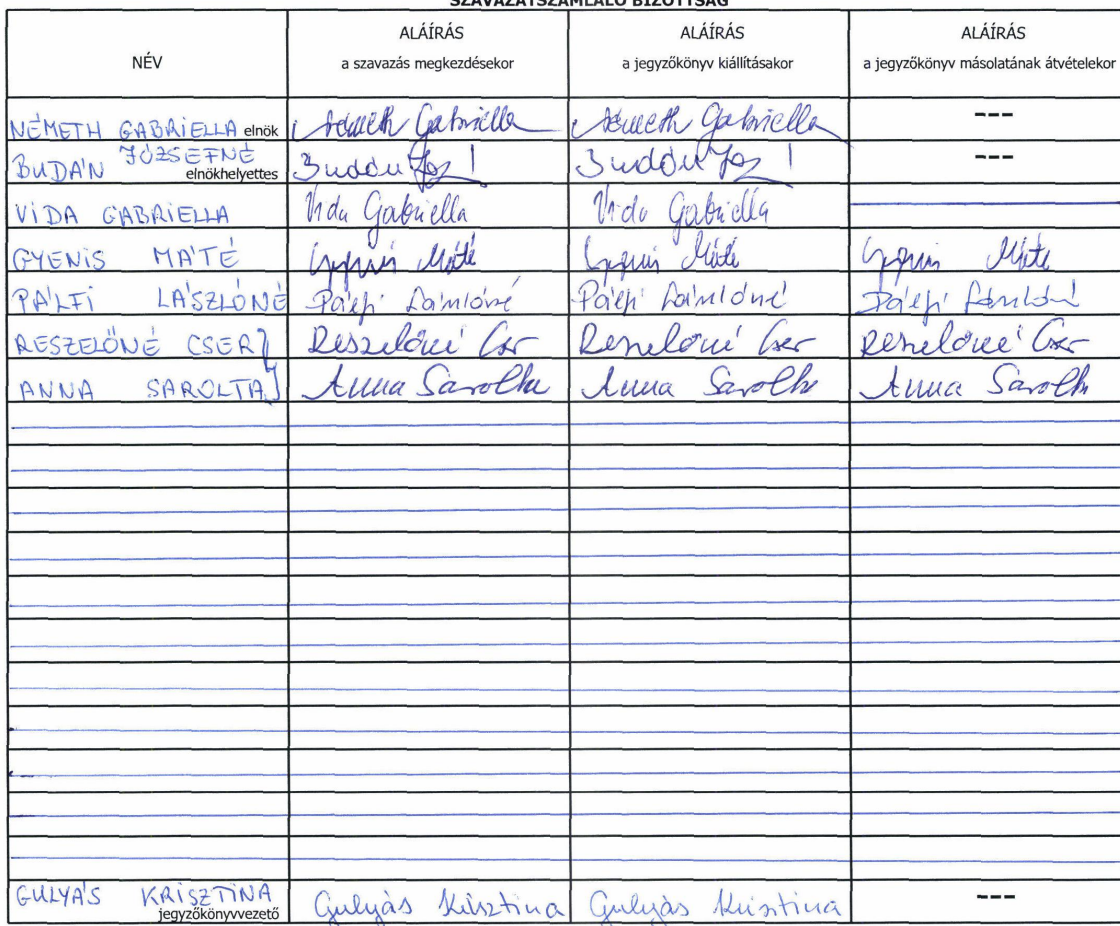 SZAVAZATSZÁMLÁLÓ BIZOTTSÁG
NÉV
ALÁÍRÁS
a szavazás megkezdésekor
ALÁÍRÁS
a jegyzőkönyv kiállításakor
ALÁÍRÁS
a jegyzőkönyv másolatának átvételekor
NÉMETH GABRIELLA elnök Németh Gabriella Németh Gabriella ---
BUDÁN JÓZSEFNÉ elnökhelyettes Budán Józs Budán Józs ---
VIDA GABRIELLA Vida Gabriella Vida Gabriella
GYENIS MÁTÉ Gyenis Máté Gyenis Máté Gyenis Máté
PÁLFI LÁSZLÓNÉ Pálfi Lászlóné Pálfi Lászlóné Pálfi Lászlóné
RESZELŐNÉ CSER Reszelőné Cser Reszelőné Cser Reszelőné Cser
ANNA SAROLTA Anna Sarolta Anna Sarolta Anna Sarolta
GULYÁS KRISZTINA jegyzőkönyvvezető Gulyás Krisztina Gulyás Krisztina ---